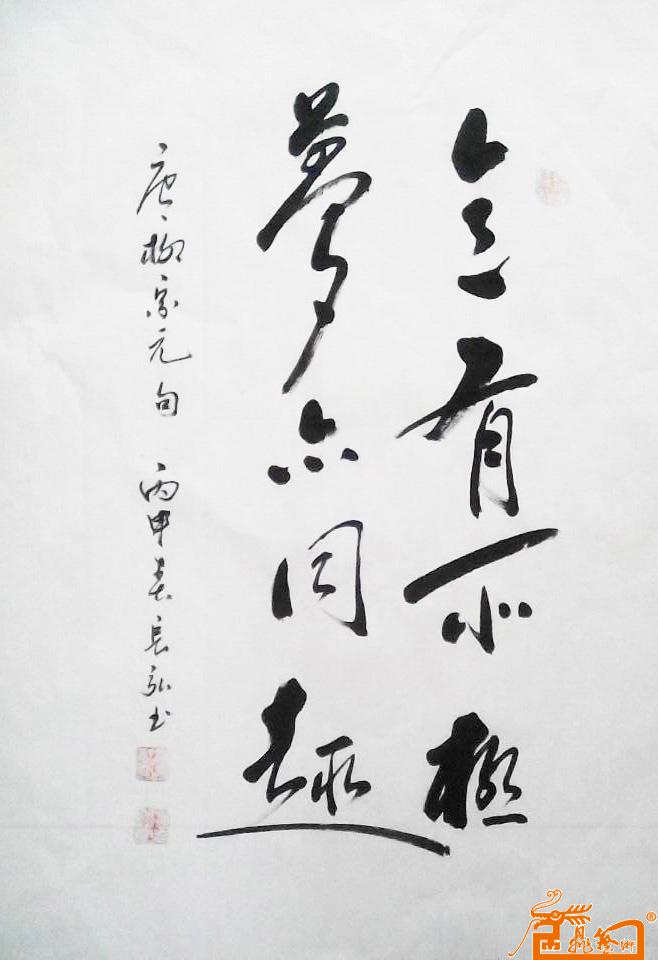 意有所极
梦亦同趣
唐柳宗元句 丙申春长弘书